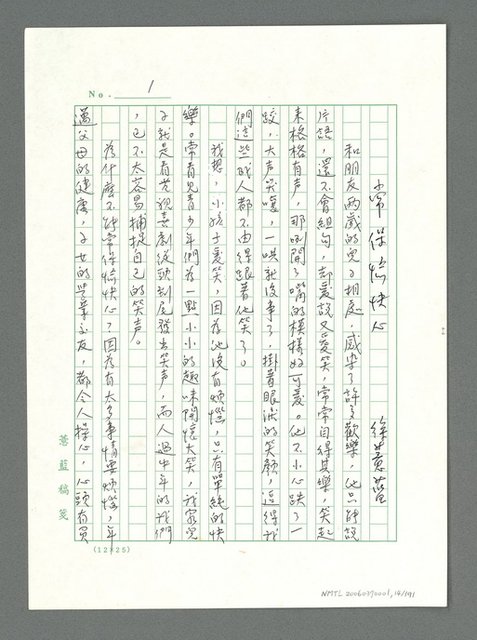 No. 1
常保愉快心 徐蕙藍
和朋友兩歲的兒子相處,感染了許多歡樂,他只能說
片語,還不會組句,却愛說又愛笑,常常自得其樂,笑起
來格格有声,那咧開了嘴的模樣好可愛。他不小心跌了一
跤,大声哭嚷,一哄就沒事了,掛着眼淚的笑顏,逗得我
們這些成人都不由得跟着他笑了。
我想,小孩子愛笑,因為他沒有煩惱,只有單純的快
樂。常看見青少年們為一點小小的趣味開懷大笑,我家兒
子就是看荒視喜劇從頭到尾發出笑声,而人過中年的我們
,已不太容易捕捉自己的笑声。
為什麼不能常保愉快心?因為有太多事情要煩惱,年
邁父母的健康,子女的學業交友,都令人操心,心頭有負
蕙藍稿箋
(12×25)
NMTL 20060370001, 14/191